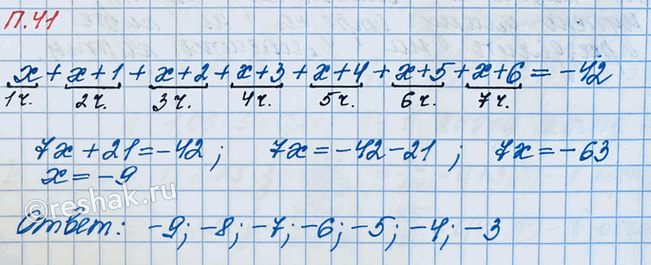 П.41
x + x+1 + x+2 + x+3 + x+4 + x+5 + x+6 = -42
1ч. 2ч. 3ч. 4ч. 5ч. 6ч. 7ч.
7x + 21 = -42 ; 7x = -42 - 21 ; 7x = -63
x = -9
Ответ: -9; -8; -7; -6; -5; -4; -3
reshak.ru